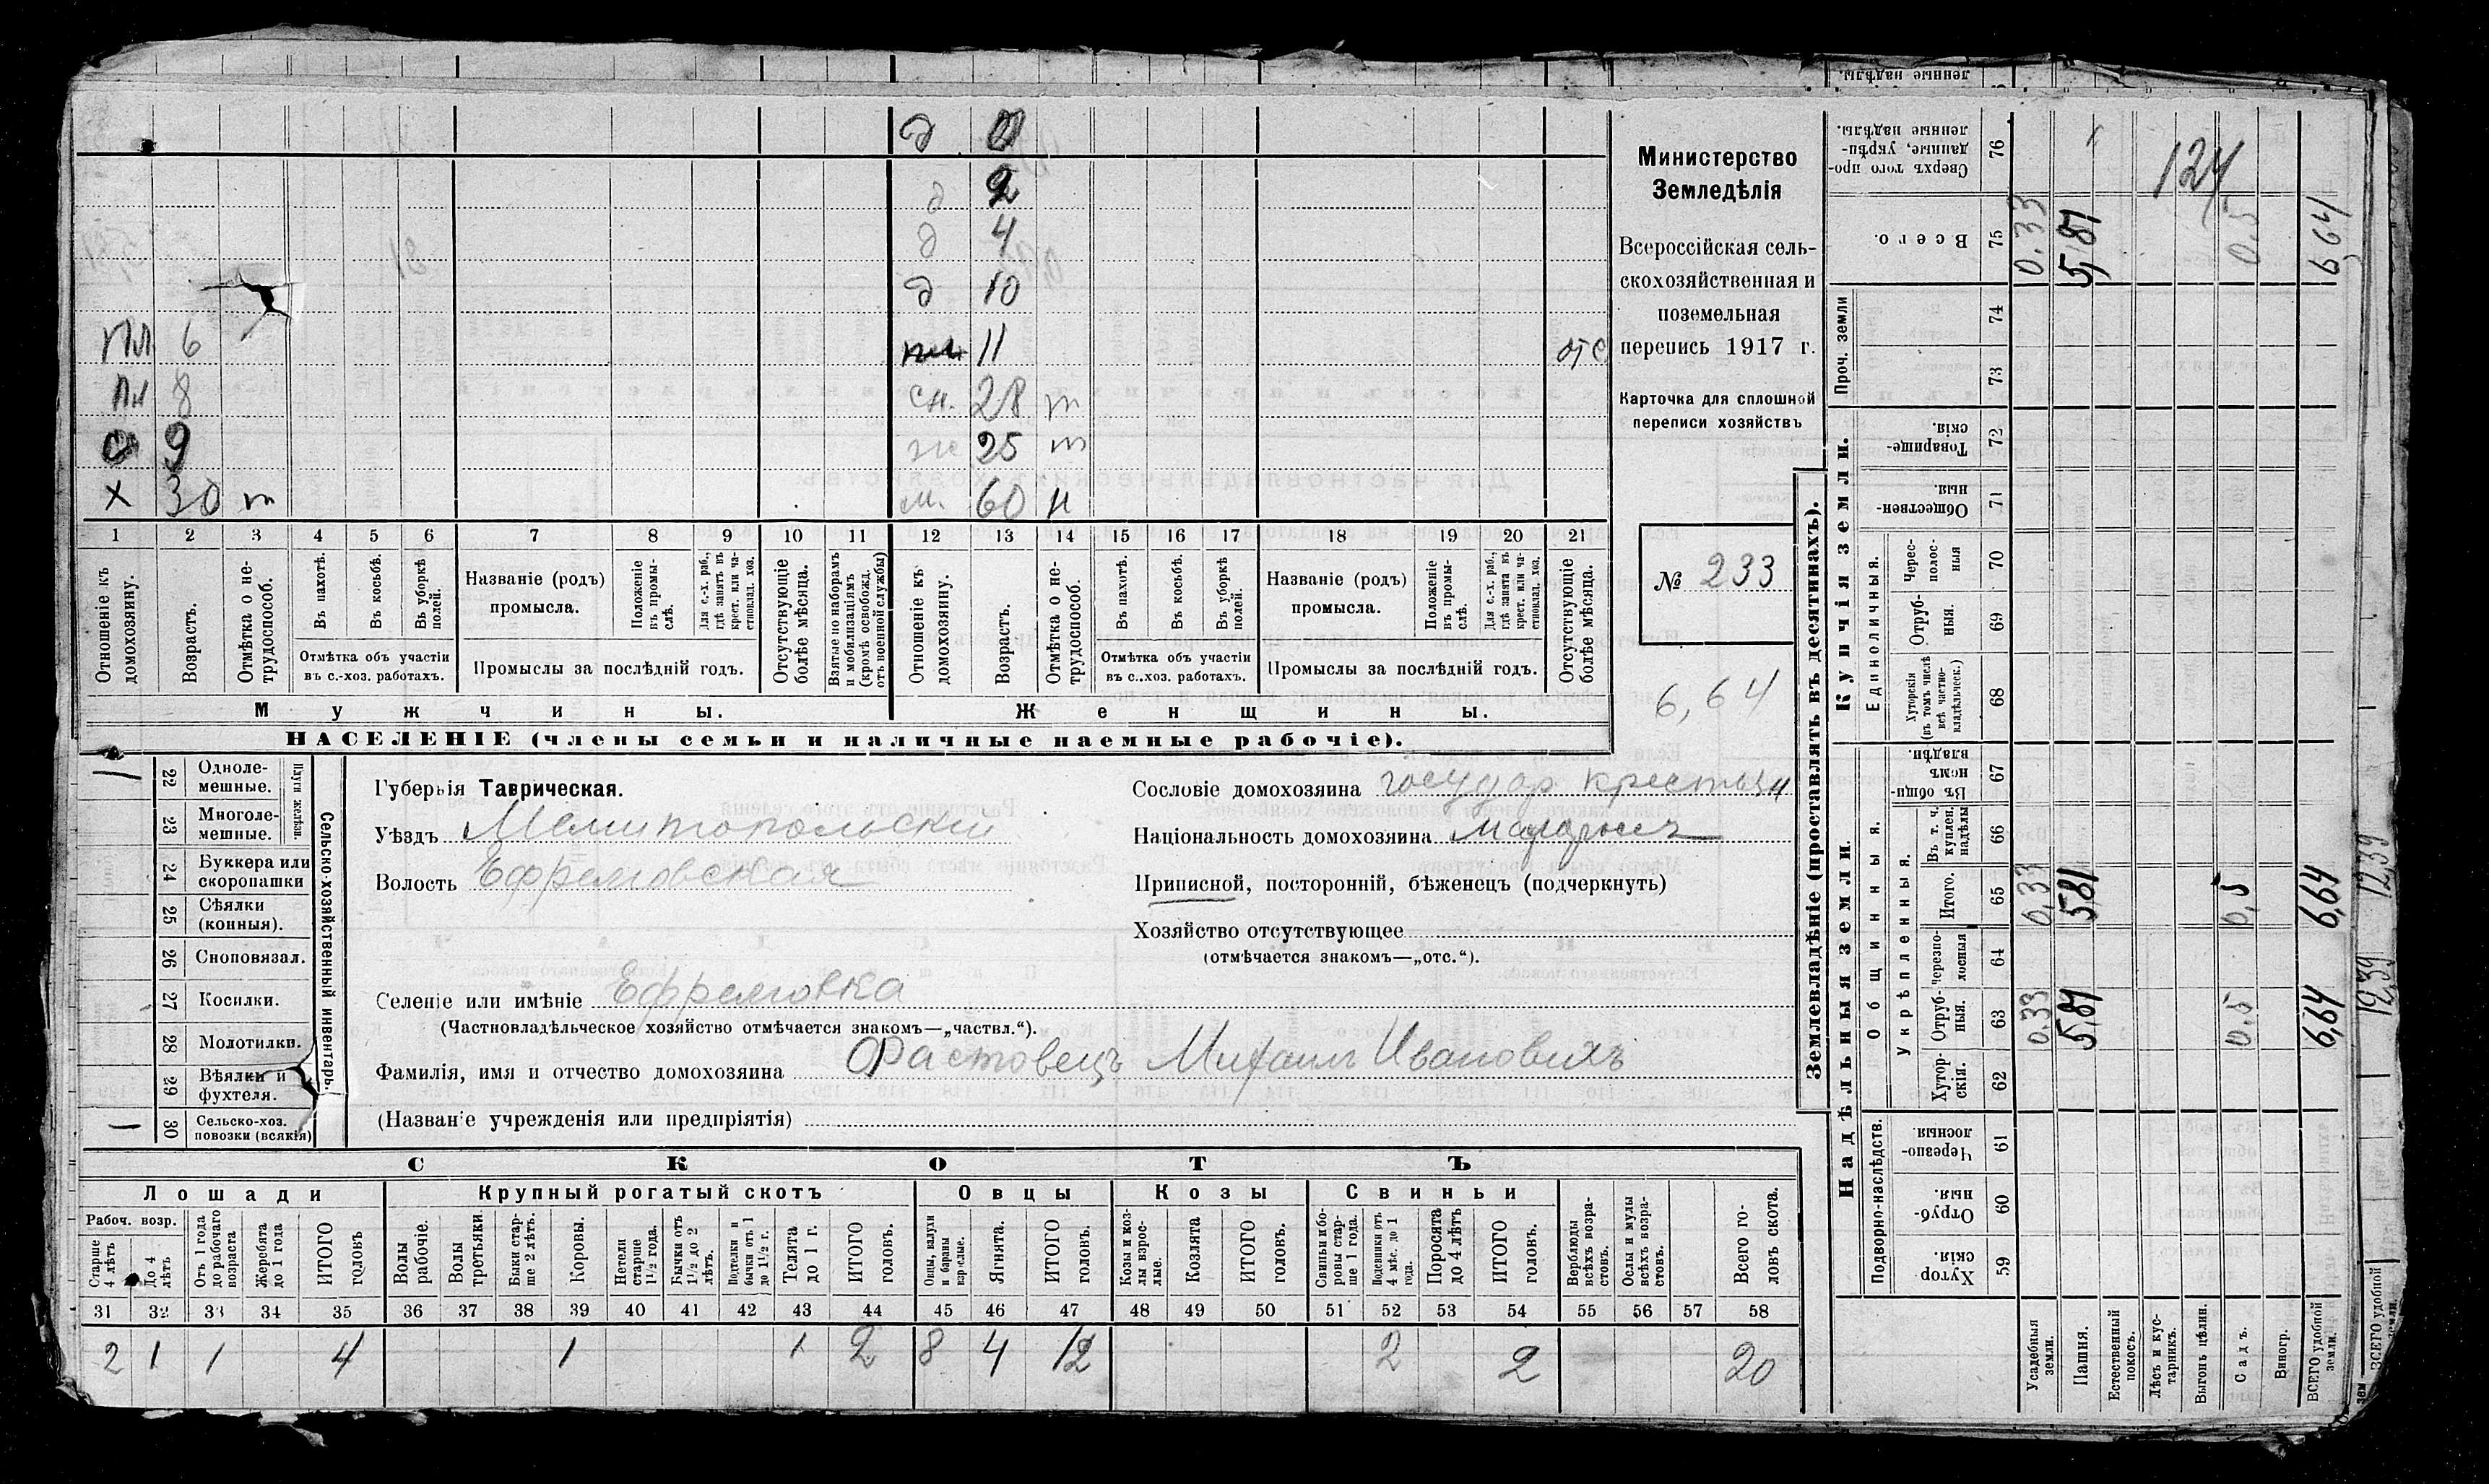 д 0
д 2
д 4
д 10
Пл 6 11 отс
Пл 8 сн. 28 т
9 ж 25 т
х 30 т м. 60 н
1 2 3 4 5 6 7 8 9 10 11 12 13 14 15 16 17 18 19 20 21
Отношеніе къ домохозяину.
Возрастъ.
Отмѣтка о не-
трудоспособ.
Въ пахотѣ.
Въ косьбѣ.
Въ уборкѣ полей.
Отмѣтка объ участіи
въ с.-хоз. работахъ.
Названіе (родъ)
промысла.
Положеніе въ промы-
слѣ.
Для с.-х. раб.,
гдѣ занятъ въ
крест. или ча-
стновлад. хоз.
Промыслы за послѣдній годъ.
Отсутствующіе
болѣе мѣсяца.
Взятые по наборамъ
и мобилизаціямъ
(кромѣ освобожд.
отъ военной службы)
Отношеніе къ
домохозяину.
Возрастъ.
Отмѣтка о не-
трудоспособ.
Въ пахотѣ.
Въ косьбѣ.
Въ уборкѣ
полей.
Отмѣтка объ участіи
въ с..хоз. работахъ.
Названіе (родъ)
промысла.
Положеніе
въ промы-
слѣ.
Для с.-х. раб.,
гдѣ занята въ
крест. или ча-
стновлад. хоз.
Промыслы за послѣдній годъ.
Отсутствующіе
болѣе мѣсяца.
Мужчины.
Женщины.
НАСЕЛЕНІЕ (члены семьи и наличные наемные рабочіе).
Министерство
Земледѣлія
Всероссійская сель-
скохозяйственная и
поземельная
перепись 1917 г.
Карточка для сплошной
переписи хозяйствъ
№ 233
6,64
22 Одноле-
мешные.
23 Многоле-
мешные.
24 Буккера или
скоропашки
25 Сѣялки
(конныя).
26 Сноповязал.
27 Косилки.
28 Молотилки.
29 Вѣялки и
фухтеля.
30 Сельско-хоз.
повозки (всякія)
Сельско-хозяйственный инвентарь.
Губернія Таврическая.
Уѣздъ Мелитопольскій
Волость Ефремовская
Селеніе или имѣніе Ефремовка
(Частновладѣльческое хозяйство отмѣчается знакомъ—„частвл.“).
Фамилія, имя и отчество домохозяина Фастовецъ Михаилъ Ивановичъ
(Названіе учрежденія или предпріятія)
Сословіе домохозяина государ крестьян
Національность домохозяина малоросъ
Приписной, посторонній, бѣженецъ (подчеркнуть)
Хозяйство отсутствующее
(отмѣчается знакомъ—„отс.“).
СКОТЪ
Лошади
Крупный рогатый скотъ
Овцы
Козы
Свиньи
Рабоч. возр.
Старше
4 лѣтъ
До 4
лѣтъ
Отъ 1 года
до рабочаго
возраста
Жеребята
до 1 года
ИТОГО
головъ
Волы
рабочіе.
Волы
третьяки.
Быки стар-
ше 2 лѣтъ.
Коровы.
Нетели
старше
1½ года.
Бычки отъ
1½ до 2
лѣтъ.
Подтелки и
бычки отъ 1
до 1½ г.
Телята
до 1 г.
ИТОГО
головъ.
Овцы, валухи
и бараны
взрослые.
Ягнята.
ИТОГО
головъ.
Козы и коз-
лы взрос-
лые.
Козлята
ИТОГО
головъ.
Свиньи и бо-
ровы стар-
ше 1 года.
Подсвинки отъ
4 мѣс. до 1
года.
Поросята
до 4 лѣтъ
ИТОГО
головъ.
Верблюды
всѣхъ возра-
стовъ.
Ослы и мулы
всѣхъ возра-
стовъ.
Всего го-
ловъ скота.
31 32 33 34 35 36 37 38 39 40 41 42 43 44 45 46 47 48 49 50 51 52 53 54 55 56 57 58
2 1 1 4 1 1 2 8 4 12 2 2 20
Землевладѣніе (проставлять въ десятинахъ).
Купчія земли.
Надѣльныя земли.
Проч. земли
Единоличныя.
Общинныя.
Укрѣпленныя.
Подворно-наслѣдств.
76 Сверхъ того про-
данные, укрѣп-
ленные надѣлы.
75 Всего. 0.33 5,81 0.5 6,64
124
74
73
72 Товарище-
скія.
71 Обществен-
ныя.
70 Черес-
полос-
ныя
69 Отруб-
ныя.
68 Хуторскія
(въ томъ числѣ
всѣ частно-
владѣльческ.)
67 Въ общин-
номъ
владѣн.
66 Въ т. ч.
куплен.
надѣлы
65 Итого. 0,33 5,81 0,5 6,64 12,39
64 Черезпо-
лосныя
63 Отруб-
ныя. 0.33 5,81 0.5 6,64 12,39
62 Хутор-
скія.
61 Черезпо-
лосныя
60 Отруб-
ныя.
59 Хутор
скія.
Усадебныя
земли.
Пашня.
Естественный
покосъ.
Лѣсъ и кус-
тарникъ.
Выгонъ цѣлин.
Садъ.
Виногр.
ВСЕГО удобной
земли.
ВСЕГО удобной
земли.